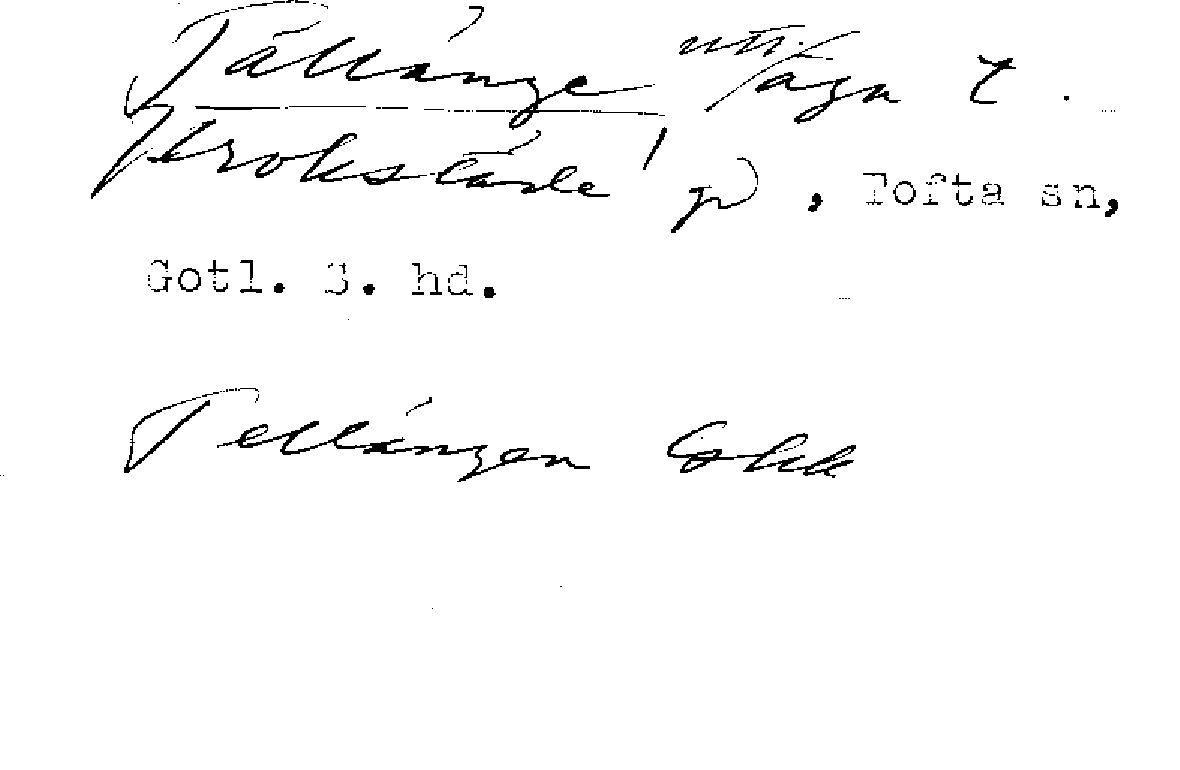 Tällänge, äga t.
Krokstäde, p, Tofta sn,
Gotl. S. hd.
Tellängen Ekk